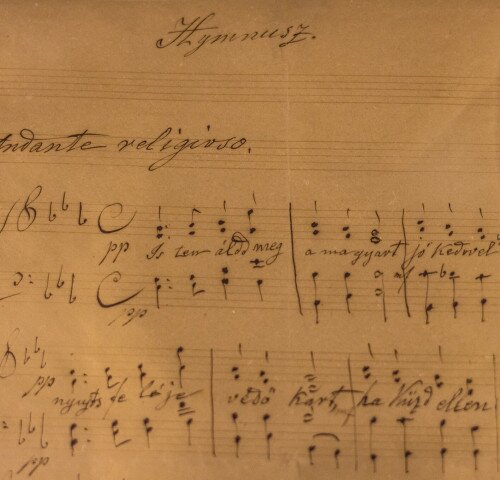 Hymnusz.
Andante religioso.
pp Is ten áldd meg a magyart jó kedvvel
pp
pp nyujts fe lé je védő kart, ha küzd ellen
pp